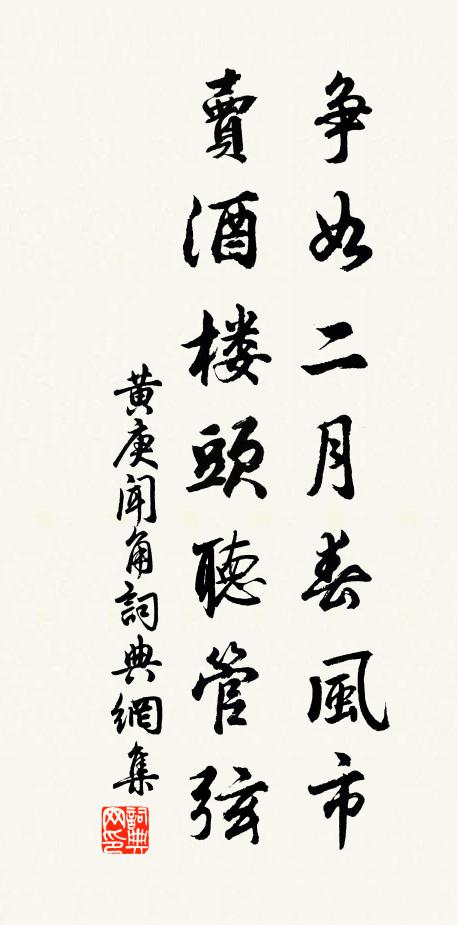 争如二月春風市
賣酒楼頭聴管弦
黄庚聞角詞典網集
詞典网印